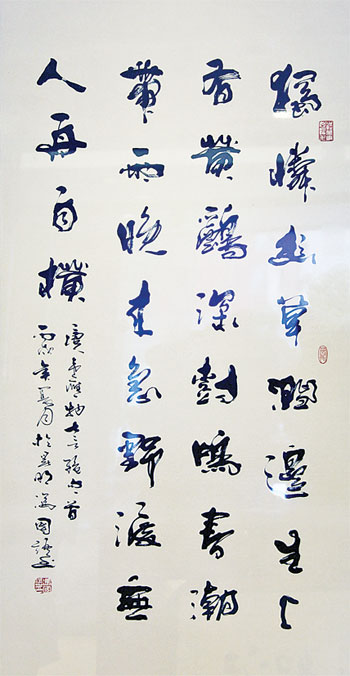 獨憐幽草澗邊生上
有黃鸝深樹鳴春潮
帶雨晚來急野渡無
人舟自橫
唐韋應物七言絕句一首
丙戌年夏月於昆明馮國語書